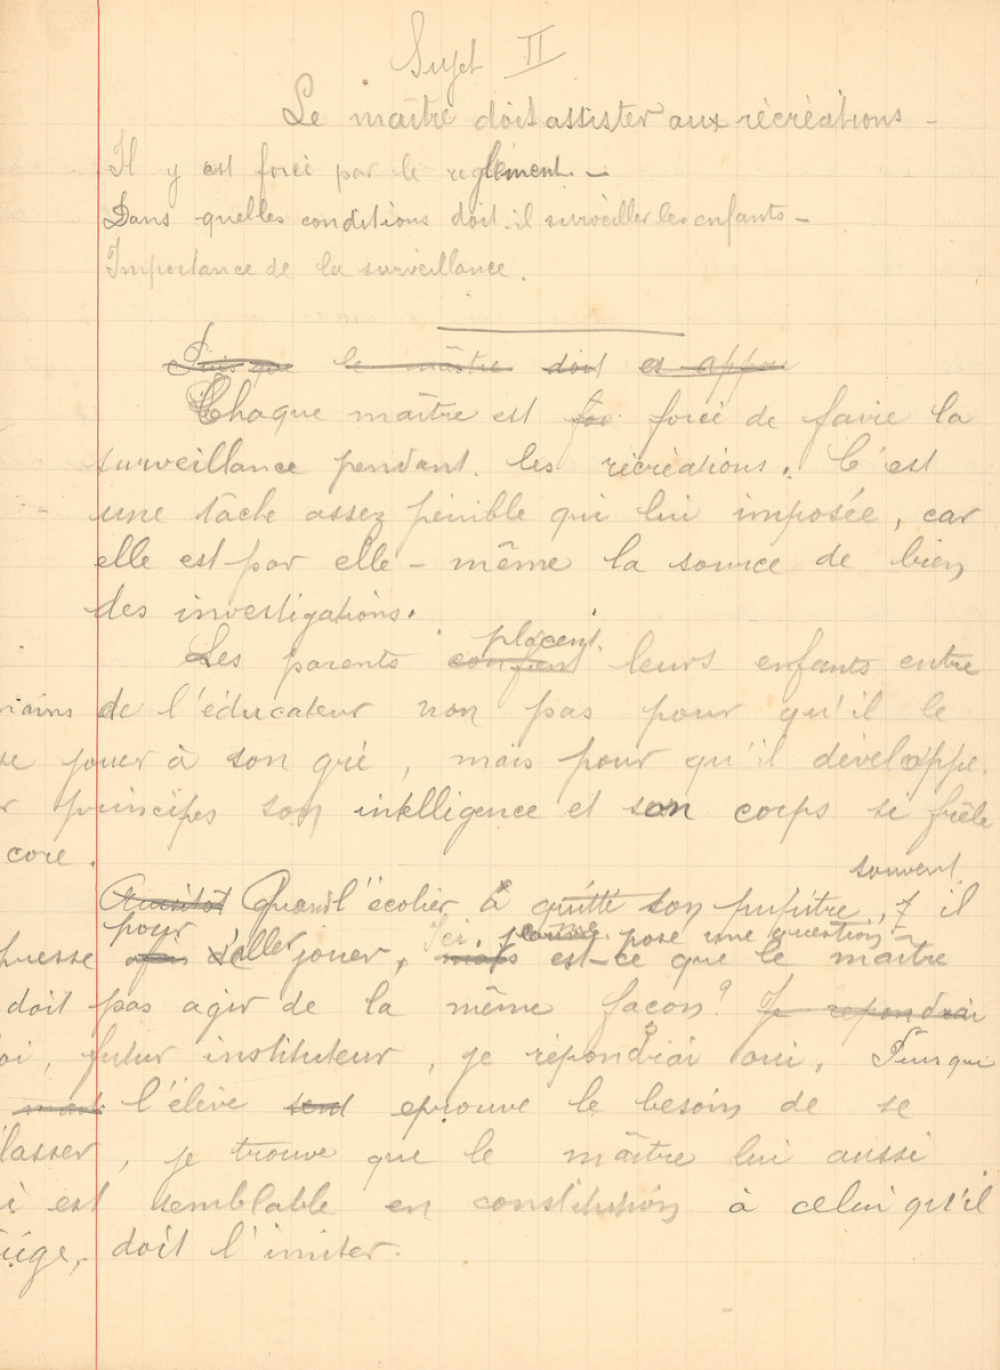 Sujet II
Le maître doit assister aux récréations -
Il y est forcé par le reglèment. -
Dans quelles conditions doit-il surveiller les enfants -
Importance de la surveillance.
Puisque le maître doit
Chaque maître est for forcé de faire la
surveillance pendant les récréations. C'est
une tâche assez pénible qui lui imposée, car
elle est par elle-même la source de bien
des investigations.
placent
Les parents confient leurs enfants entre
mains de l'éducateur non pas pour qu'il le
jouer à son gré, mais pour qu'il développe
principes son intelligence et son corps si frêle
core.
souvent
Aussitôt Quand l'écolier à quitté son pupitre, il
pour Ici, je me pose une question -
presse afin d'aller jouer, mais est-ce que le maître
doit pas agir de la même façon? Je répondrai
oi, futur instituteur, je répondrai oui. Puisque
l'élève send eprouve le besoin de se
lasser, je trouve que le maître lui aussi
i est semblable en constitution à celui qu'il
ige, doit l'imiter.